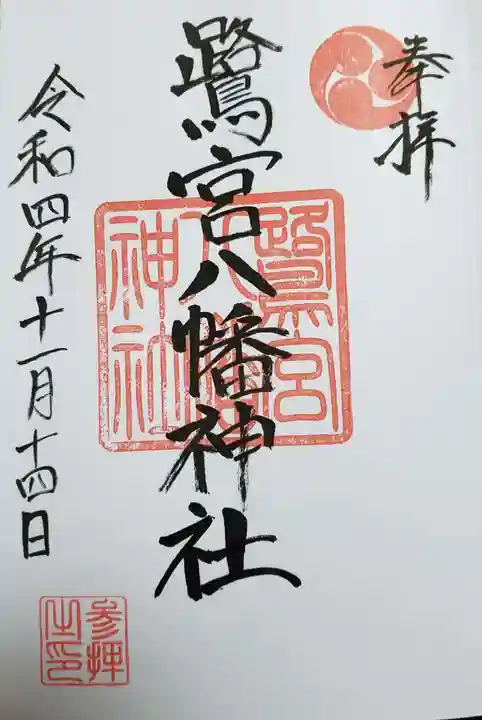 奉拝
鷺宮八幡神社
鷺宮
八幡
神社
令和四年十一月十四日
参拝
之印